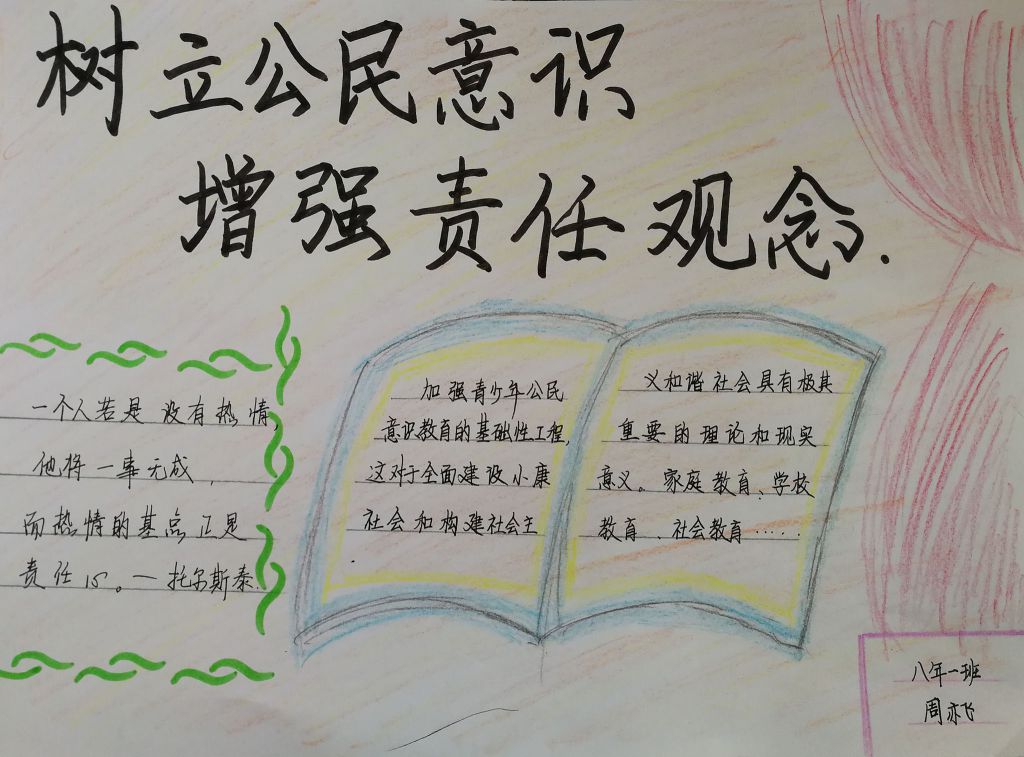 树立公民意识
增强责任观念.
一个人若是没有热情,
他将一事无成,
而热情的基点正是
责任心。—托尔斯泰.
加强青少年公民
意识教育的基础性工程,
这对于全面建设小康
社会和构建社会主
义和谐社会具有极其
重要的理论和现实
意义。家庭教育、学校
教育、社会教育······
八年一班
周亦飞